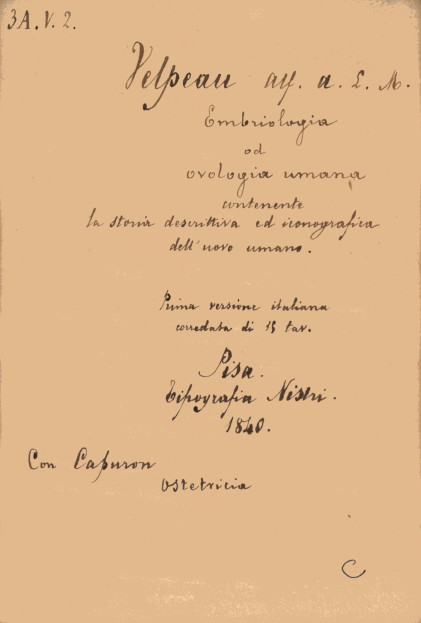 3A. V. 2.
Velpeau alf. a. L. M.
Embriologia
od
ovologia umana
contenente
la storia descrittiva ed iconografica
dell'uovo umano.
Prima versione italiana
corredata di 15 tav.
Pisa.
Tipografia Nistri.
1840.
Con Capuron
Ostetricia
C